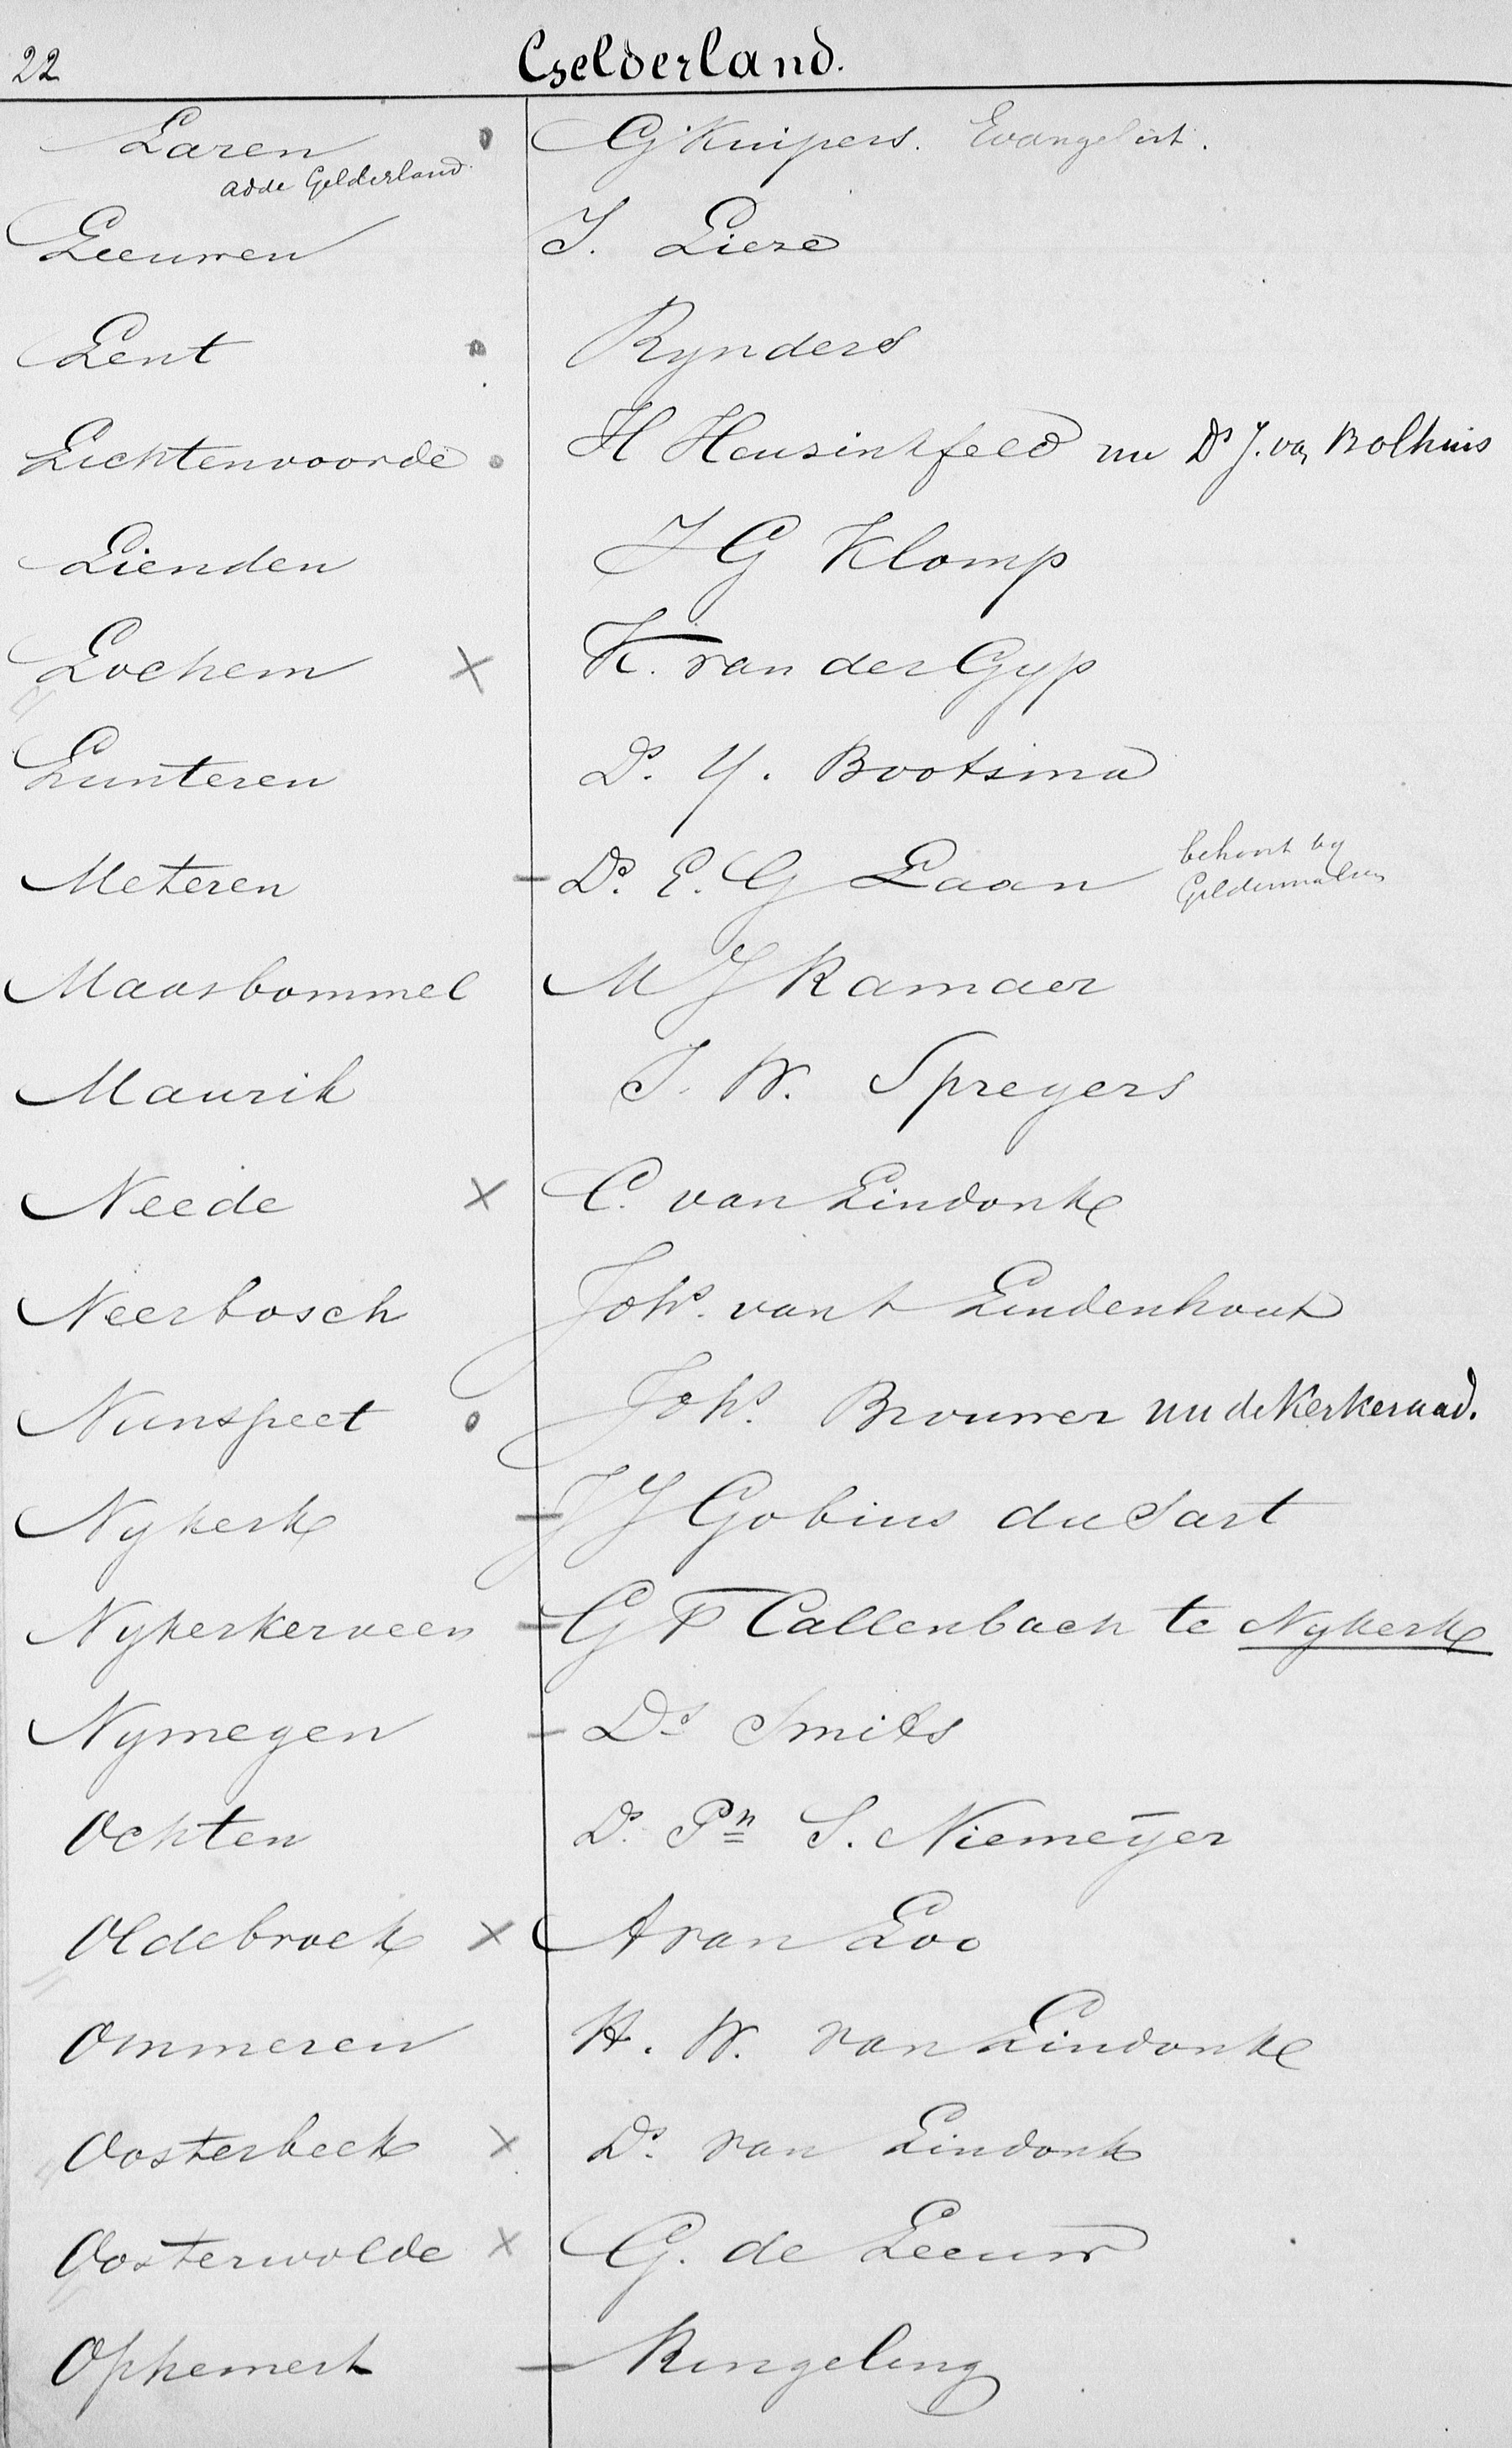 22 Gelderland.
Laren G Kuipers. Evangelist.
Gelderland
Leeuwen J. Liere
Lent Rynders
Lichtenvoorde H Heusinkfeld nu Ds J. van Bolhuis
Lienden J G Klomp
Lochem K. van der Gyp
Lunteren Ds. Y. Bootsma
Meteren Ds. E. G Laan behoort by
Geldermalsen
Maasbommel M J Ramaer
Maurik J. W. Spreyers
Neede C. van Lindonk
Neerbosch Johs. van t Lindenhout
Nunspeet Johs. Brouwer nu de Kerkeraad.
Nykerk J J Gobius du Sart
Nykerkerveen G F Callenbach te Nykerk
Nymegen Ds Smits
Ochten Ds. Pn S. Niemeÿer
Oldebroek A van Loo
Ommeren H. W. van Lindonk
Oosterbeek Ds. van Lindonk
Oosterwolde G. de Leeuw
Ophemert Ringeling